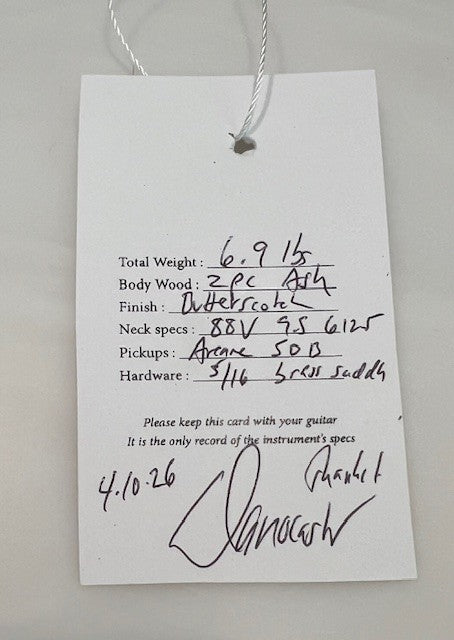 Total Weight : 6.9 lbs
Body Wood : 2pc Ash
Finish : Butterscotch
Neck specs : 88V 9.5 6125
Pickups : Arcane 50B
Hardware : 5/16 brass saddles
Please keep this card with your guitar
It is the only record of the instrument's specs
4.10.26 Thanks!
Danocaster